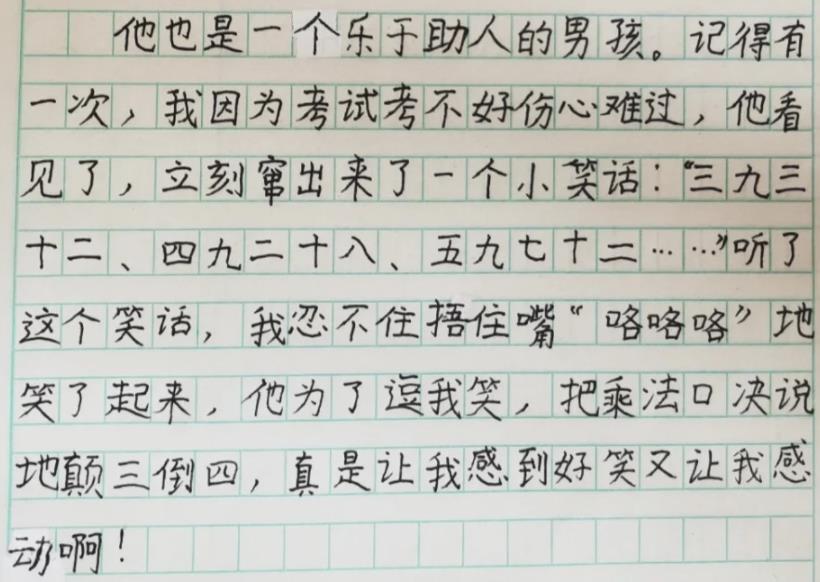 他也是一个乐于助人的男孩。记得有
一次，我因为考试考不好伤心难过，他看
见了，立刻窜出来了一个小笑话：“三九三
十二、四九二十八、五九七十二……”听了
这个笑话，我忍不住捂住嘴“咯咯咯”地
笑了起来，他为了逗我笑，把乘法口决说
地颠三倒四，真是让我感到好笑又让我感
动啊！